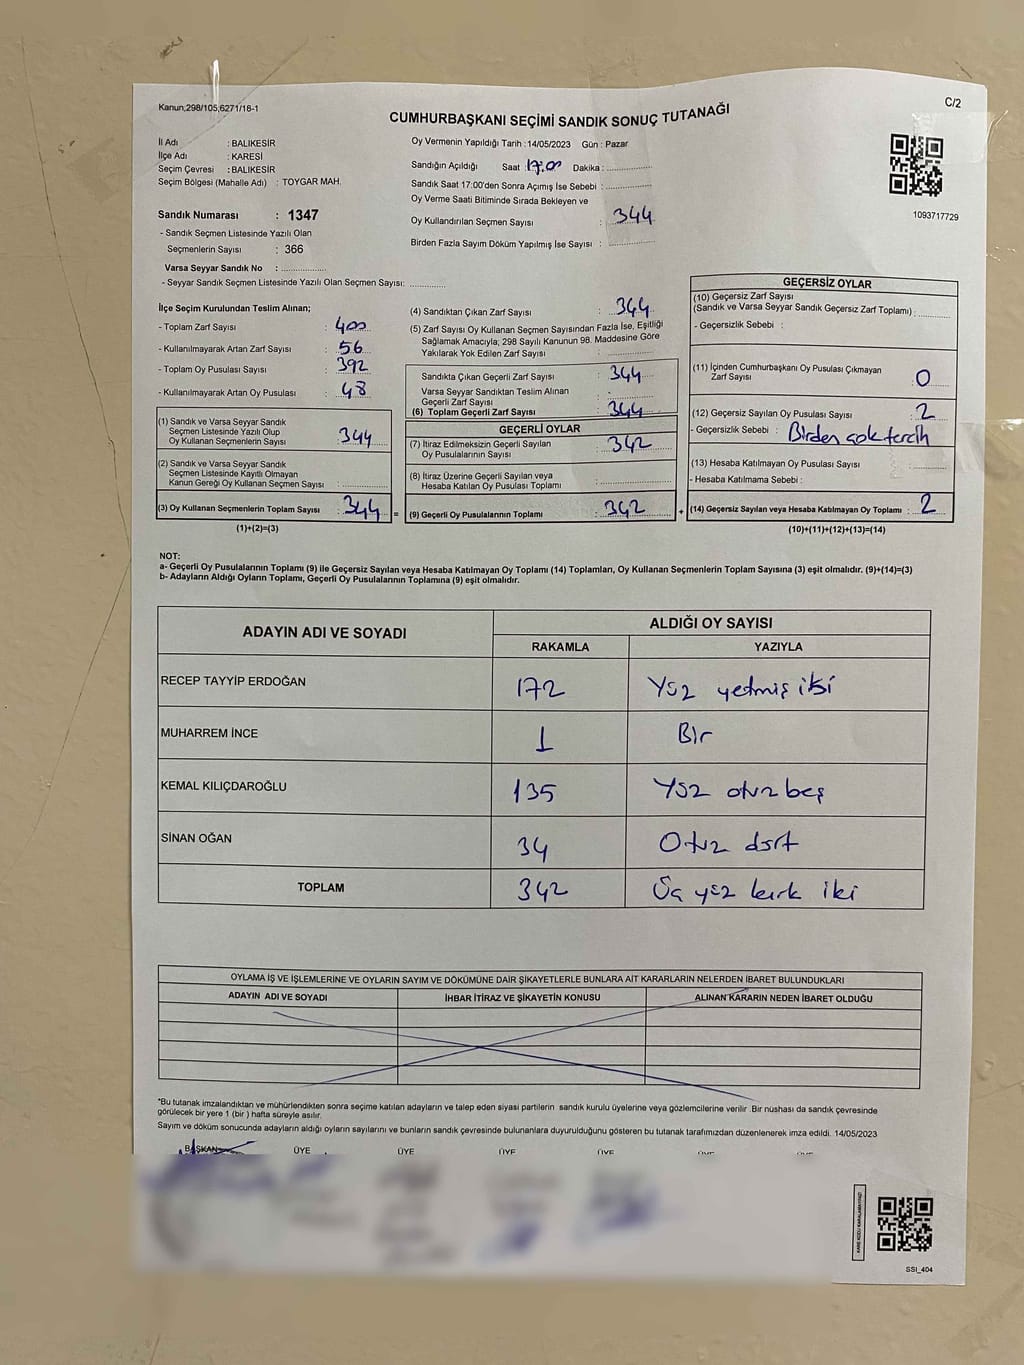 Kanun;298/105,6271/18-1
C/2
CUMHURBAŞKANI SEÇİMİ SANDIK SONUÇ TUTANAĞI
İl Adı : BALIKESİR
İlçe Adı : KARESİ
Seçim Çevresi : BALIKESİR
Seçim Bölgesi (Mahalle Adı) : TOYGAR MAH.
Sandık Numarası : 1347
- Sandık Seçmen Listesinde Yazılı Olan
Seçmenlerin Sayısı : 366
Varsa Seyyar Sandık No : ................
- Seyyar Sandık Seçmen Listesinde Yazılı Olan Seçmen Sayısı: ............
Oy Vermenin Yapıldığı Tarih :14/05/2023 Gün : Pazar
Sandığın Açıldığı Saat : 17:00 Dakika : ................
Sandık Saat 17:00'den Sonra Açımış İse Sebebi : ...............
Oy Verme Saati Bitiminde Sırada Bekleyen ve
Oy Kullandırılan Seçmen Sayısı : 344
Birden Fazla Sayım Döküm Yapılmış İse Sayısı : ...............
1093717729
İlçe Seçim Kurulundan Teslim Alınan;
- Toplam Zarf Sayısı : 400
- Kullanılmayarak Artan Zarf Sayısı : 56
- Toplam Oy Pusulası Sayısı : 392
- Kullanılmayarak Artan Oy Pusulası : 48
(1) Sandık ve Varsa Seyyar Sandık
Seçmen Listesinde Yazılı Olup
Oy Kullanan Seçmenlerin Sayısı : 344
(2) Sandık ve Varsa Seyyar Sandık
Seçmen Listesinde Kayıtlı Olmayan
Kanun Gereği Oy Kullanan Seçmen Sayısı : ................
(3) Oy Kullanan Seçmenlerin Toplam Sayısı : 344 =
(1)+(2)=(3)
(4) Sandıktan Çıkan Zarf Sayısı : 344
(5) Zarf Sayısı Oy Kullanan Seçmen Sayısından Fazla İse, Eşitliği
Sağlamak Amacıyla; 298 Sayılı Kanunun 98. Maddesine Göre
Yakılarak Yok Edilen Zarf Sayısı : ................
Sandıkta Çıkan Geçerli Zarf Sayısı : 344
Varsa Seyyar Sandıktan Teslim Alınan
Geçerli Zarf Sayısı : ................
(6) Toplam Geçerli Zarf Sayısı : 344
GEÇERLİ OYLAR
(7) İtiraz Edilmeksizin Geçerli Sayılan
Oy Pusulalarının Sayısı : 342
(8) İtiraz Üzerine Geçerli Sayılan veya
Hesaba Katılan Oy Pusulası Toplamı : ................
(9) Geçerli Oy Pusulalarının Toplamı : 342 +
GEÇERSİZ OYLAR
(10) Geçersiz Zarf Sayısı
(Sandık ve Varsa Seyyar Sandık Geçersiz Zarf Toplamı) : ............
- Geçersizlik Sebebi :
(11) İçinden Cumhurbaşkanı Oy Pusulası Çıkmayan
Zarf Sayısı : 0
(12) Geçersiz Sayılan Oy Pusulası Sayısı : 2
- Geçersizlik Sebebi : Birden çok tercih
(13) Hesaba Katılmayan Oy Pusulası Sayısı : ............
- Hesaba Katılmama Sebebi :
(14) Geçersiz Sayılan veya Hesaba Katılmayan Oy Toplamı : 2
(10)+(11)+(12)+(13)=(14)
NOT:
a- Geçerli Oy Pusulalarının Toplamı (9) ile Geçersiz Sayılan veya Hesaba Katılmayan Oy Toplamı (14) Toplamları, Oy Kullanan Seçmenlerin Toplam Sayısına (3) eşit olmalıdır. (9)+(14)=(3)
b- Adayların Aldığı Oyların Toplamı, Geçerli Oy Pusulalarının Toplamına (9) eşit olmalıdır.
ADAYIN ADI VE SOYADI ALDIĞI OY SAYISI
RAKAMLA YAZIYLA
RECEP TAYYİP ERDOĞAN 172 Yüz yetmiş iki
MUHARREM İNCE 1 Bir
KEMAL KILIÇDAROĞLU 135 Yüz otuz beş
SİNAN OĞAN 34 Otuz dört
TOPLAM 342 Üç yüz kırk iki
OYLAMA İŞ VE İŞLEMLERİNE VE OYLARIN SAYIM VE DÖKÜMÜNE DAİR ŞİKAYETLERLE BUNLARA AİT KARARLARIN NELERDEN İBARET BULUNDUKLARI
ADAYIN ADI VE SOYADI İHBAR İTİRAZ VE ŞİKAYETİN KONUSU ALINAN KARARIN NEDEN İBARET OLDUĞU
*Bu tutanak imzalandıktan ve mühürlendikten sonra seçime katılan adayların ve talep eden siyasi partilerin sandık kurulu üyelerine veya gözlemcilerine verilir .Bir nüshası da sandık çevresinde
görülecek bir yere 1 (bir ) hafta süreyle asılır.
Sayım ve döküm sonucunda adayların aldığı oyların sayılarını ve bunların sandık çevresinde bulunanlara duyurulduğunu gösteren bu tutanak tarafımızdan düzenlenerek imza edildi. 14/05/2023
BAŞKAN ÜYE ÜYE ÜYE ÜYE
SSI_404